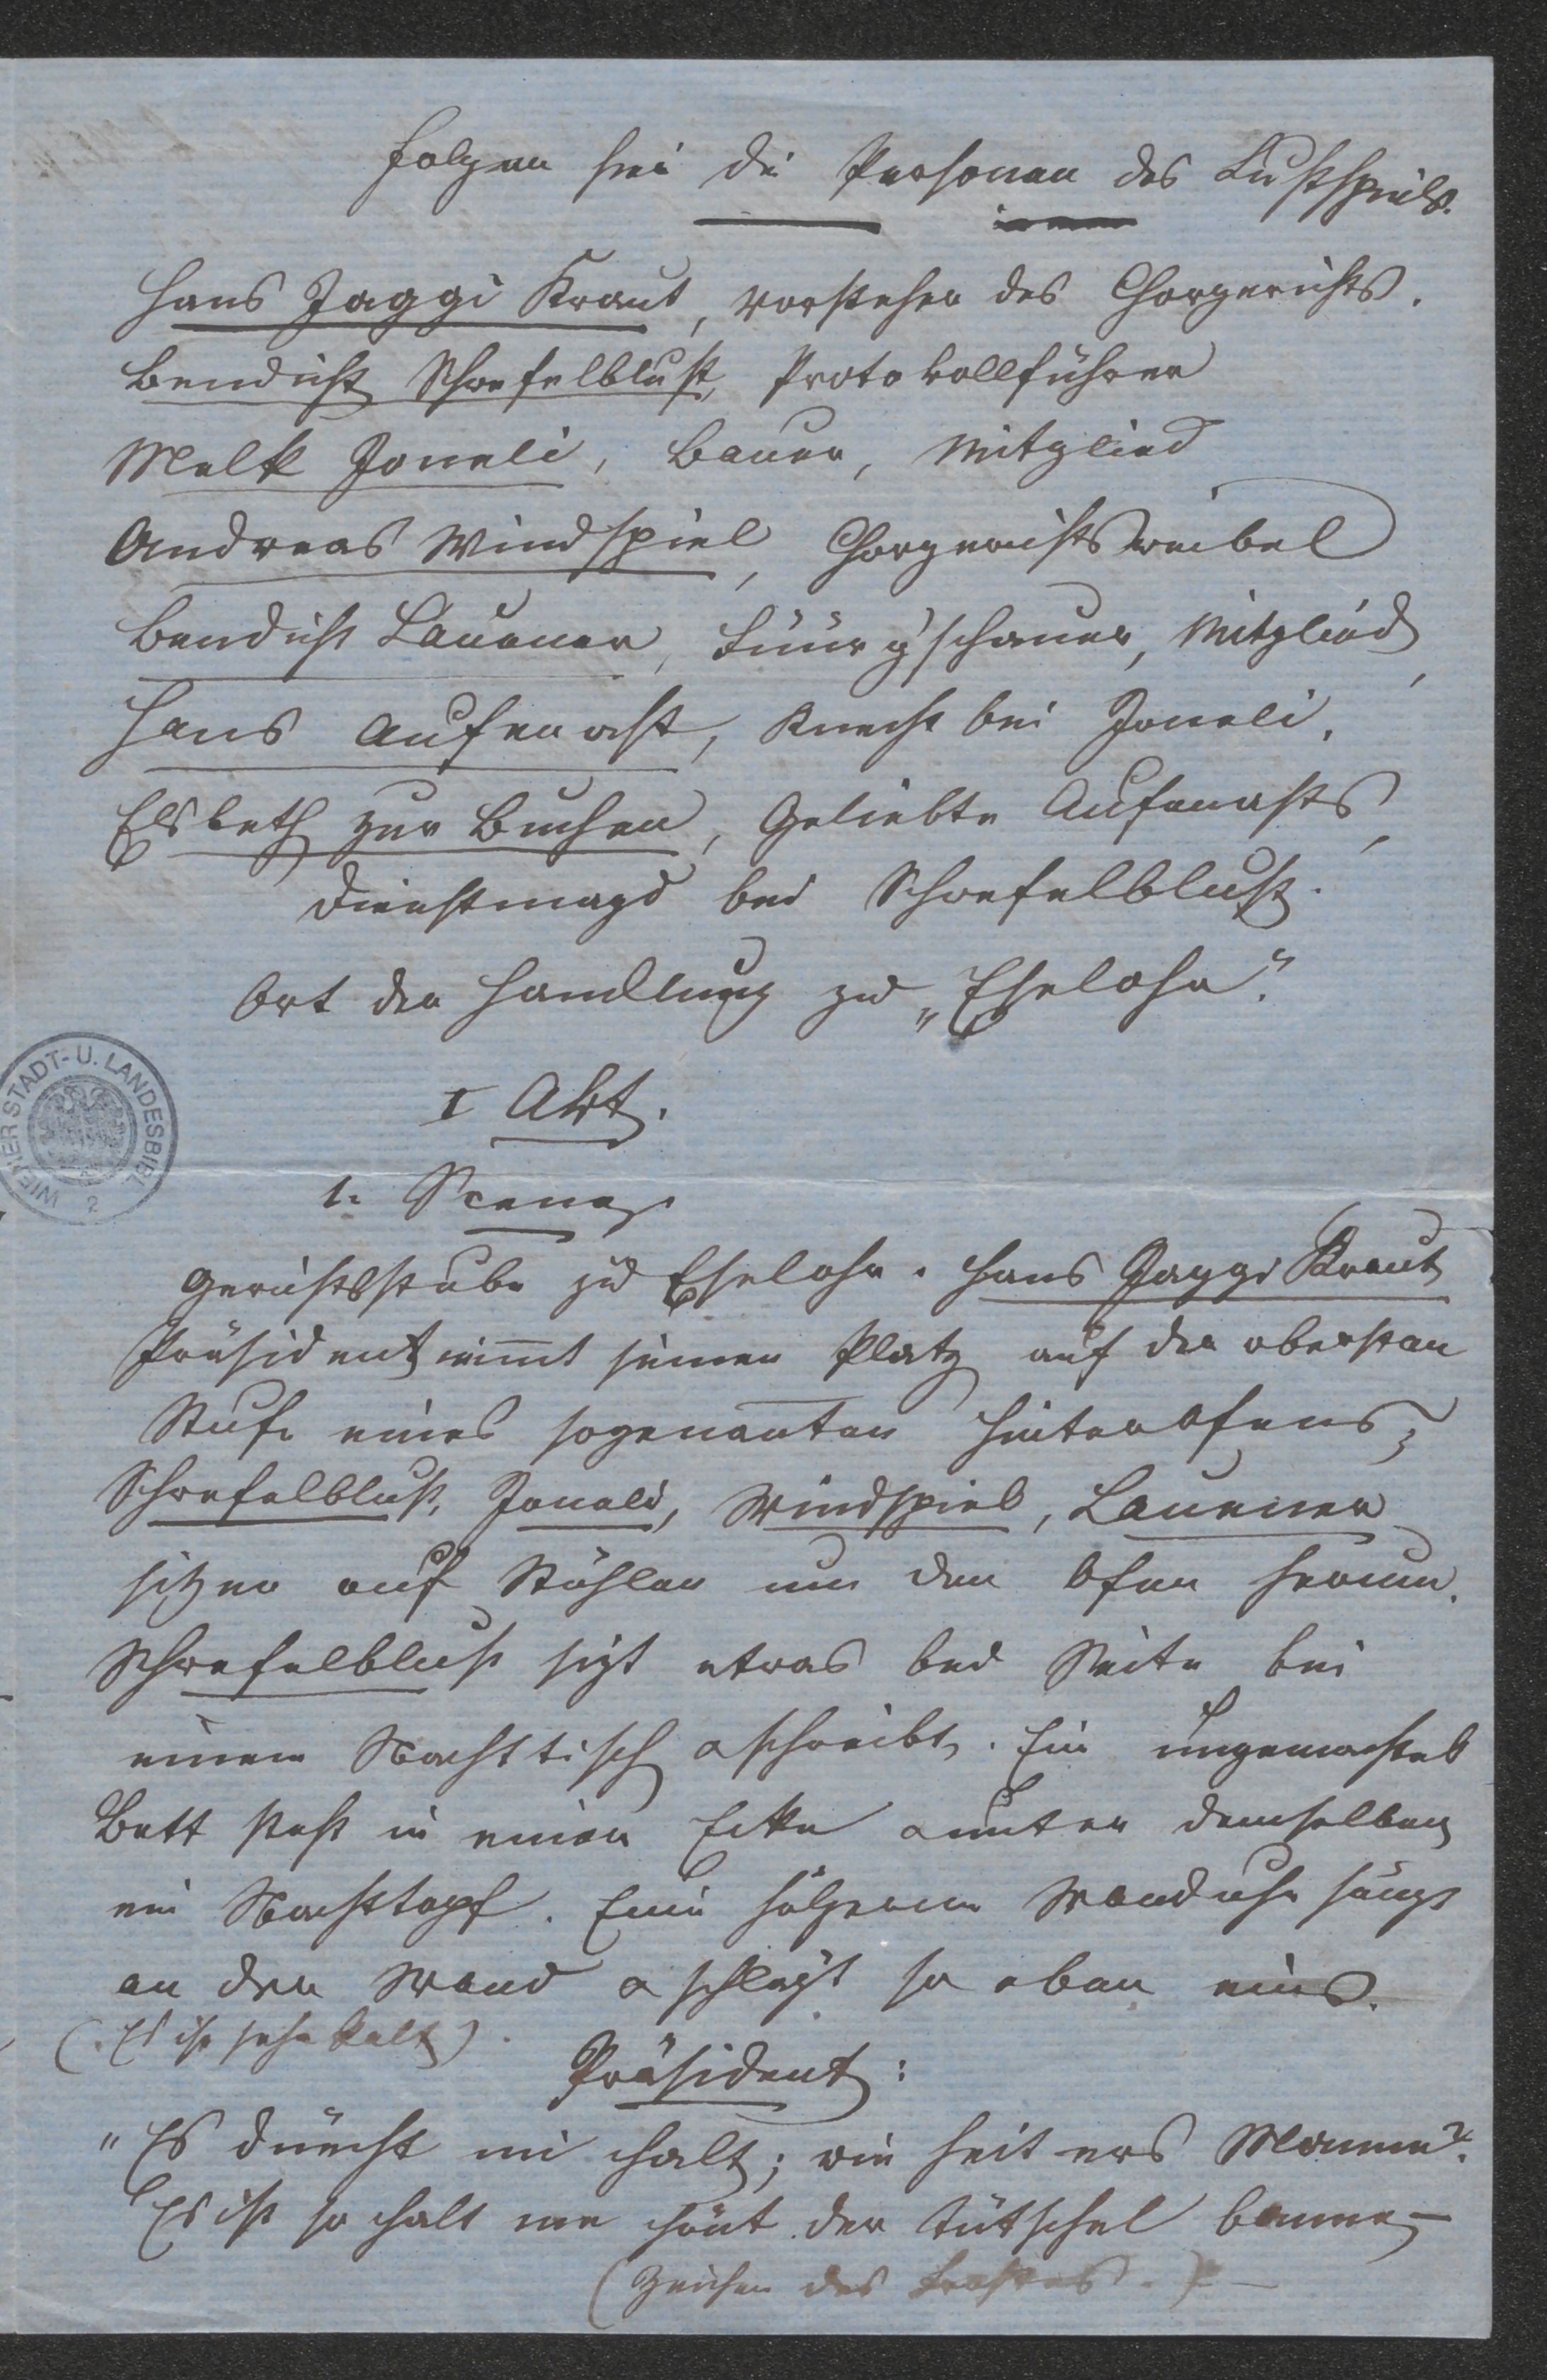 Folgen hie die Personen des Lustspiels.
Hans Jaggi Kraut, Vorsteher des Chorgerichts.
Bendicht Schwefelblust, Protokollführer
Melk Joneli, Bauer, Mitglied
Andreas Windspiel, Chorgerichtsweibel
Bendicht Lauener, Füürg'schauer, Mitglied,
Hans Aufenast, Knecht bei Joneli,
Elsbeth zur Buchen, Geliebte Aufenasts,
Dienstmagd bei Schwefelblust.
Ort der Handlung zu „Eselohr".
I Akt.
1. Scene.
Gerichtsstube zu Eselohr. Hans Jaggi Kraut
Präsident nimmt seinen Platz auf der obersten
Stufe eines sogenannten Hinterofens;
Schwefelblust, Joneli, Windspiel, Lauener
sitzen auf Stühlen um den Ofen herum.
Schwefelblust sizt etwas bei Seite bei
einem Nachttisch & schreibt. Ein ungemachtes
Bett steht in einer Ecke & unter demselben
ein Nachttopf. Eine hölzerne Wanduhr hängt
an der Wand & schlägt so eben eins.
(Es ist sehr kalt).
Präsident:
„Es dünckt mi chalt; wie heit ers Manne?
Es ist so chalt me chönt der Tütschel
(Zeichen des Frostes.) —
WIENER STADT- U. LANDESBIBL
2